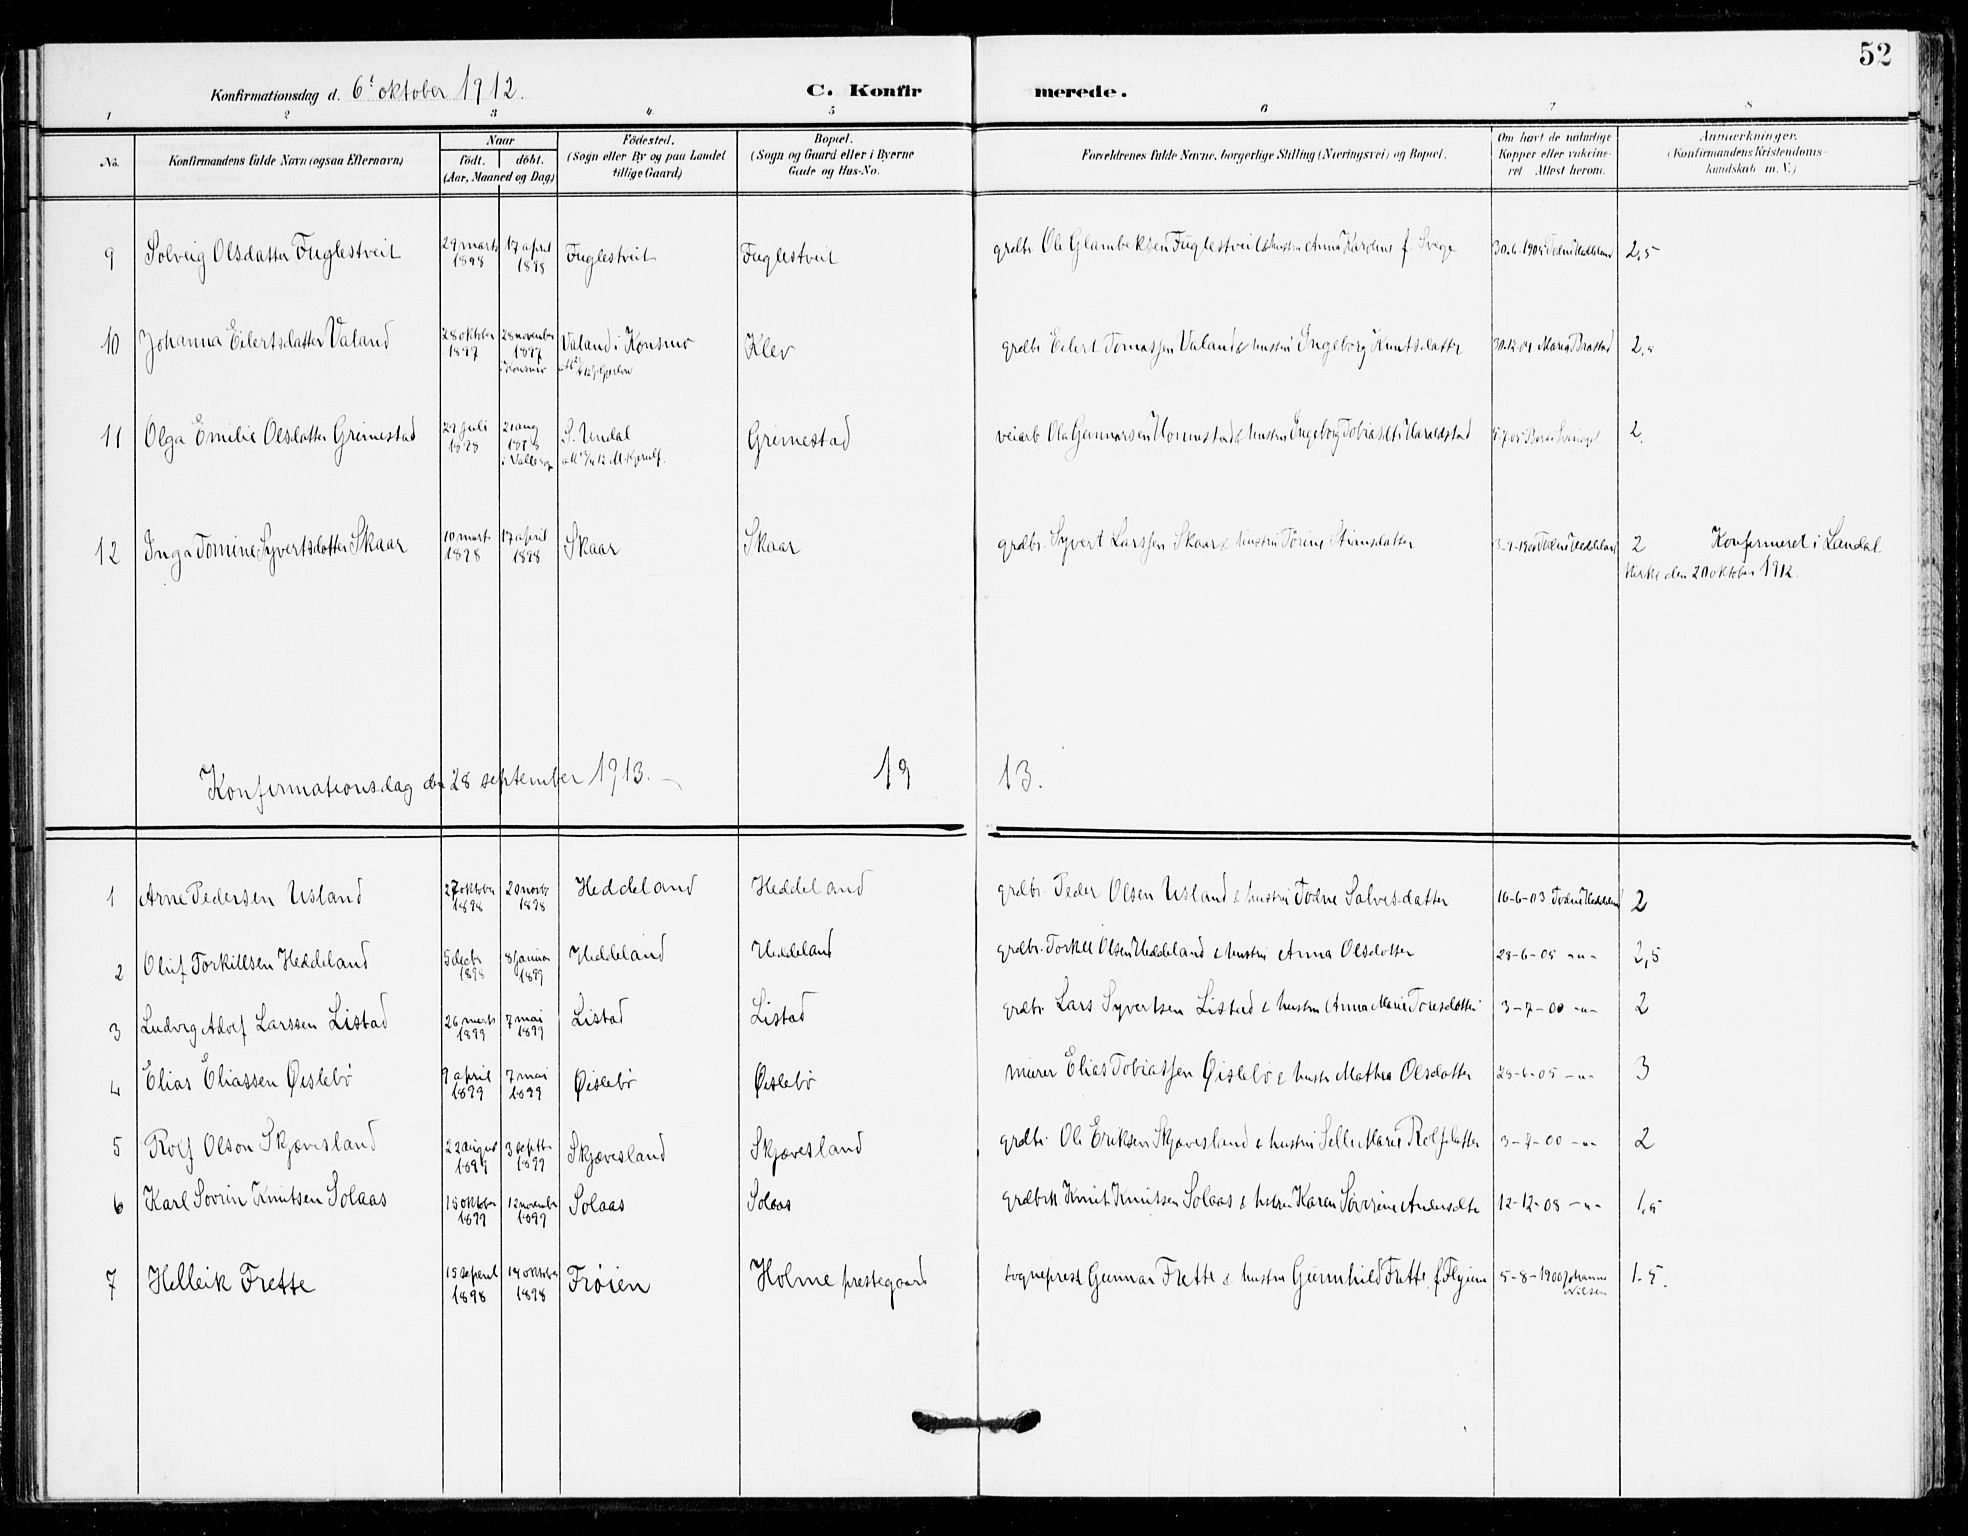 52
Konfirmationsdag d. 6' oktober 1912.
C. Konfirmerede.
1 2 3 4 5 6 7 8
No.
Konfirmandens fulde Navn (ogsaa Efternavn)
Naar
födt. döbt.
(Aar, Maaned og Dag)
Födested.
(Sogn eller By og paa Landet
tillige Gaard)
Bopæl.
(Sogn og Gaard eller i Byerne
Gade og Hus-No.
Forældrenes fulde Navne, borgerlige Stilling (Næringsvei) og Bopæl.
Om havt de naturlige
Kopper eller vakcine-
ret Attest herom.
Anmærkninger.
(Konfirmandens Kristendoms-
kundskab m. V.)
9 Solveig Olsdatter Fuglestveit 29 marts 1898 17 april 1898 Fuglestveit Fuglestveit grdbr. Ole Fuglestveit & hustru Anna Karoline f. 2,5
10 Johanna Eilertsdatter Valand 28 oktober 1897 28 november 1897 i Konsmo Valand i Konsmo Klev grdbr. Eilert Tomassen Valand & hustru Ingeborg Knutsdatter 2,5
11 Olga Emilie Olsdatter Grimestad juli 1898 aug 1898 S. Undal Grimestad veiarb. Ole Gunnarsen & hustru Ingeborg 2.
12 Inga Tomine Syvertsdatter Skaar 10 mart. 1898 17 april 1898 Skaar Skaar grdbr. Syvert Larssen Skaar & hustru 2 Konfirmeret i Laudal
kirke den 20 oktober 1912.
Konfirmationsdag den 28 september 1913. 1913.
1 Arne Pedersen Usland 27 oktober 1898 20 novbr 1898 Heddeland Heddeland grdbr. Peder Olsen Usland & hustru Todne Salvesdatter 16-6-03 2
2 Oluf Torkildsen Heddeland 5 decbr 1898 8 januar 1899 Heddeland Heddeland grdbr. Torkel Olsen Heddeland & hustru Anna Olsdatter 28-6-05 -"- 2,5
3 Ludvig Adolf Larssen Listad 26 marts 1899 7 mai 1899 Listad Listad grdbr. Lars Syvertsen Listad & hustru Anna Marie Toresdatter 3-7-00 -"- 2
4 Elias Eliassen Øislebø 9 april 1899 7 mai 1899 Øislebø Øislebø murer Elias Tobiassen Øislebø & hustr. Mathea Olsdatter 28-6-05 -"- 3
5 Rolf Olson Skjævesland 22 august 1899 3 septbr 1899 Skjævesland Skjævesland grdbr. Ole Eriksen Skjævesland & hustru Selle Marie Rolfsdatter 3-7-00 -"- 2
6 Karl Sovrin Knutsen Solaas 15 oktober 1899 12 november 1899 Solaas Solaas grdbr. Knut Knutsen Solaas & hustru Karen Severine 12-12-08 -"- 1,5
7 Helleik Frette 15 septembr 1898 14 oktober 1898 Frøien Holme prestegaard sogneprest Gunnar Frette & hustru Gunnhild Frette f. 5-8-1900 Johanne
Nilsen 1.5.